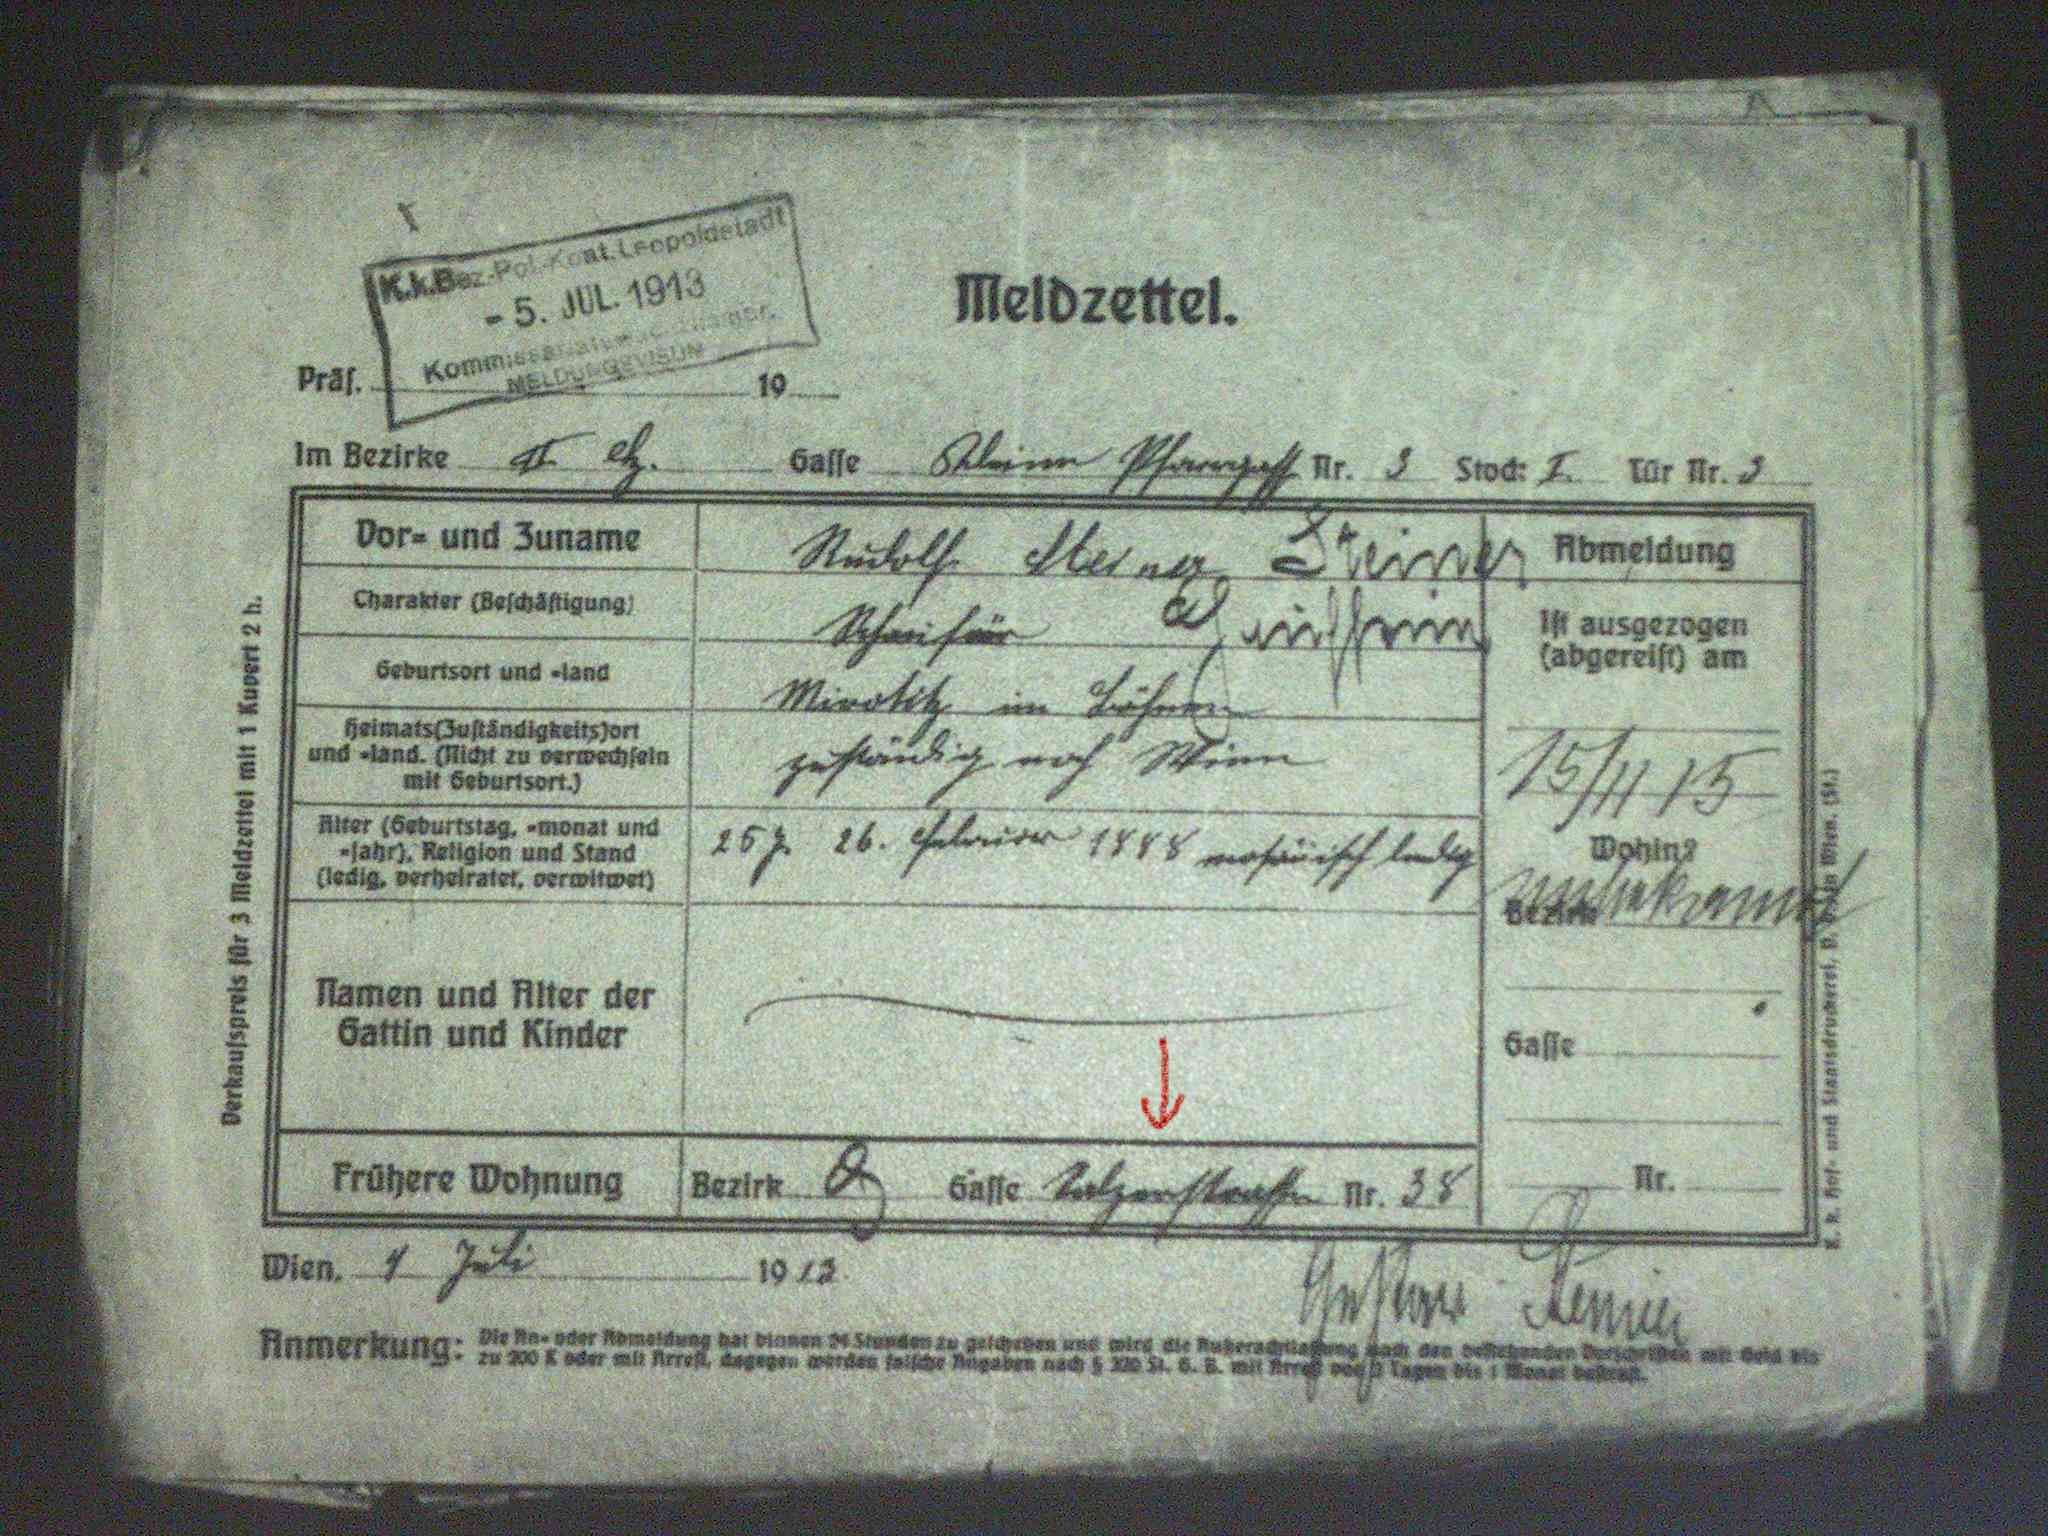 K.k.Bez.-Pol.-Kont. Leopoldstadt
- 5. JUL. 1913
MELDUNGREVISION
Meldzettel.
Präs. 19
Im Bezirke II Gasse Kleine Pfarrgasse Nr. 3 Stock: I. Tür Nr. 3
Vor- und Zuname Rudolf Steiner Steiner Abmeldung
Charakter (Beschäftigung)
Geburtsort und -land Mirotitz in Böhmen
Ist ausgezogen
(abgereist) am
15/11 15
Heimats(Zuständigkeits)ort
und -land. (Nicht zu verwechseln
mit Geburtsort.)
zuständig nach Wien
Alter (Geburtstag, -monat und
-jahr), Religion und Stand
(ledig, verheiratet, verwitwet)
25 J. 26. Februar 1888 mosaisch ledig
Wohin?
unbekannt
Bezirk
Namen und Alter der
Gattin und Kinder
Gasse
Nr.
Frühere Wohnung Bezirk Gasse Nr. 38
Wien, Juli 1913
Anmerkung: Die An- oder Abmeldung hat binnen 24 Stunden zu geschehen und wird die Außerachtlassung nach den bestehenden Vorschriften mit Geld bis
zu 200 K oder mit Arrest, dagegen werden falsche Angaben nach § 320 St. G. B. mit Arrest von 3 Tagen bis 1 Monat bestraft.
Verkaufspreis für 3 Meldzettel mit 1 Kuvert 2 h.
K. k. Hof- und Staatsdruckerei, Wien. (St.)